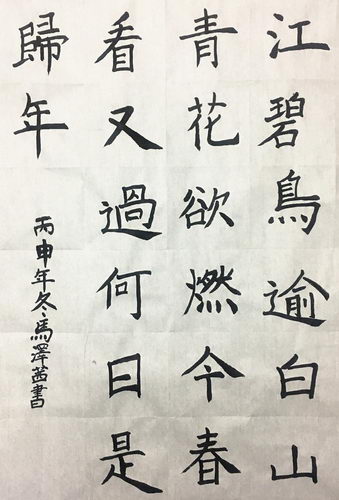 江碧鳥逾白山
青花欲燃今春
看又過何日是
歸年
丙申年冬馬澤茜書